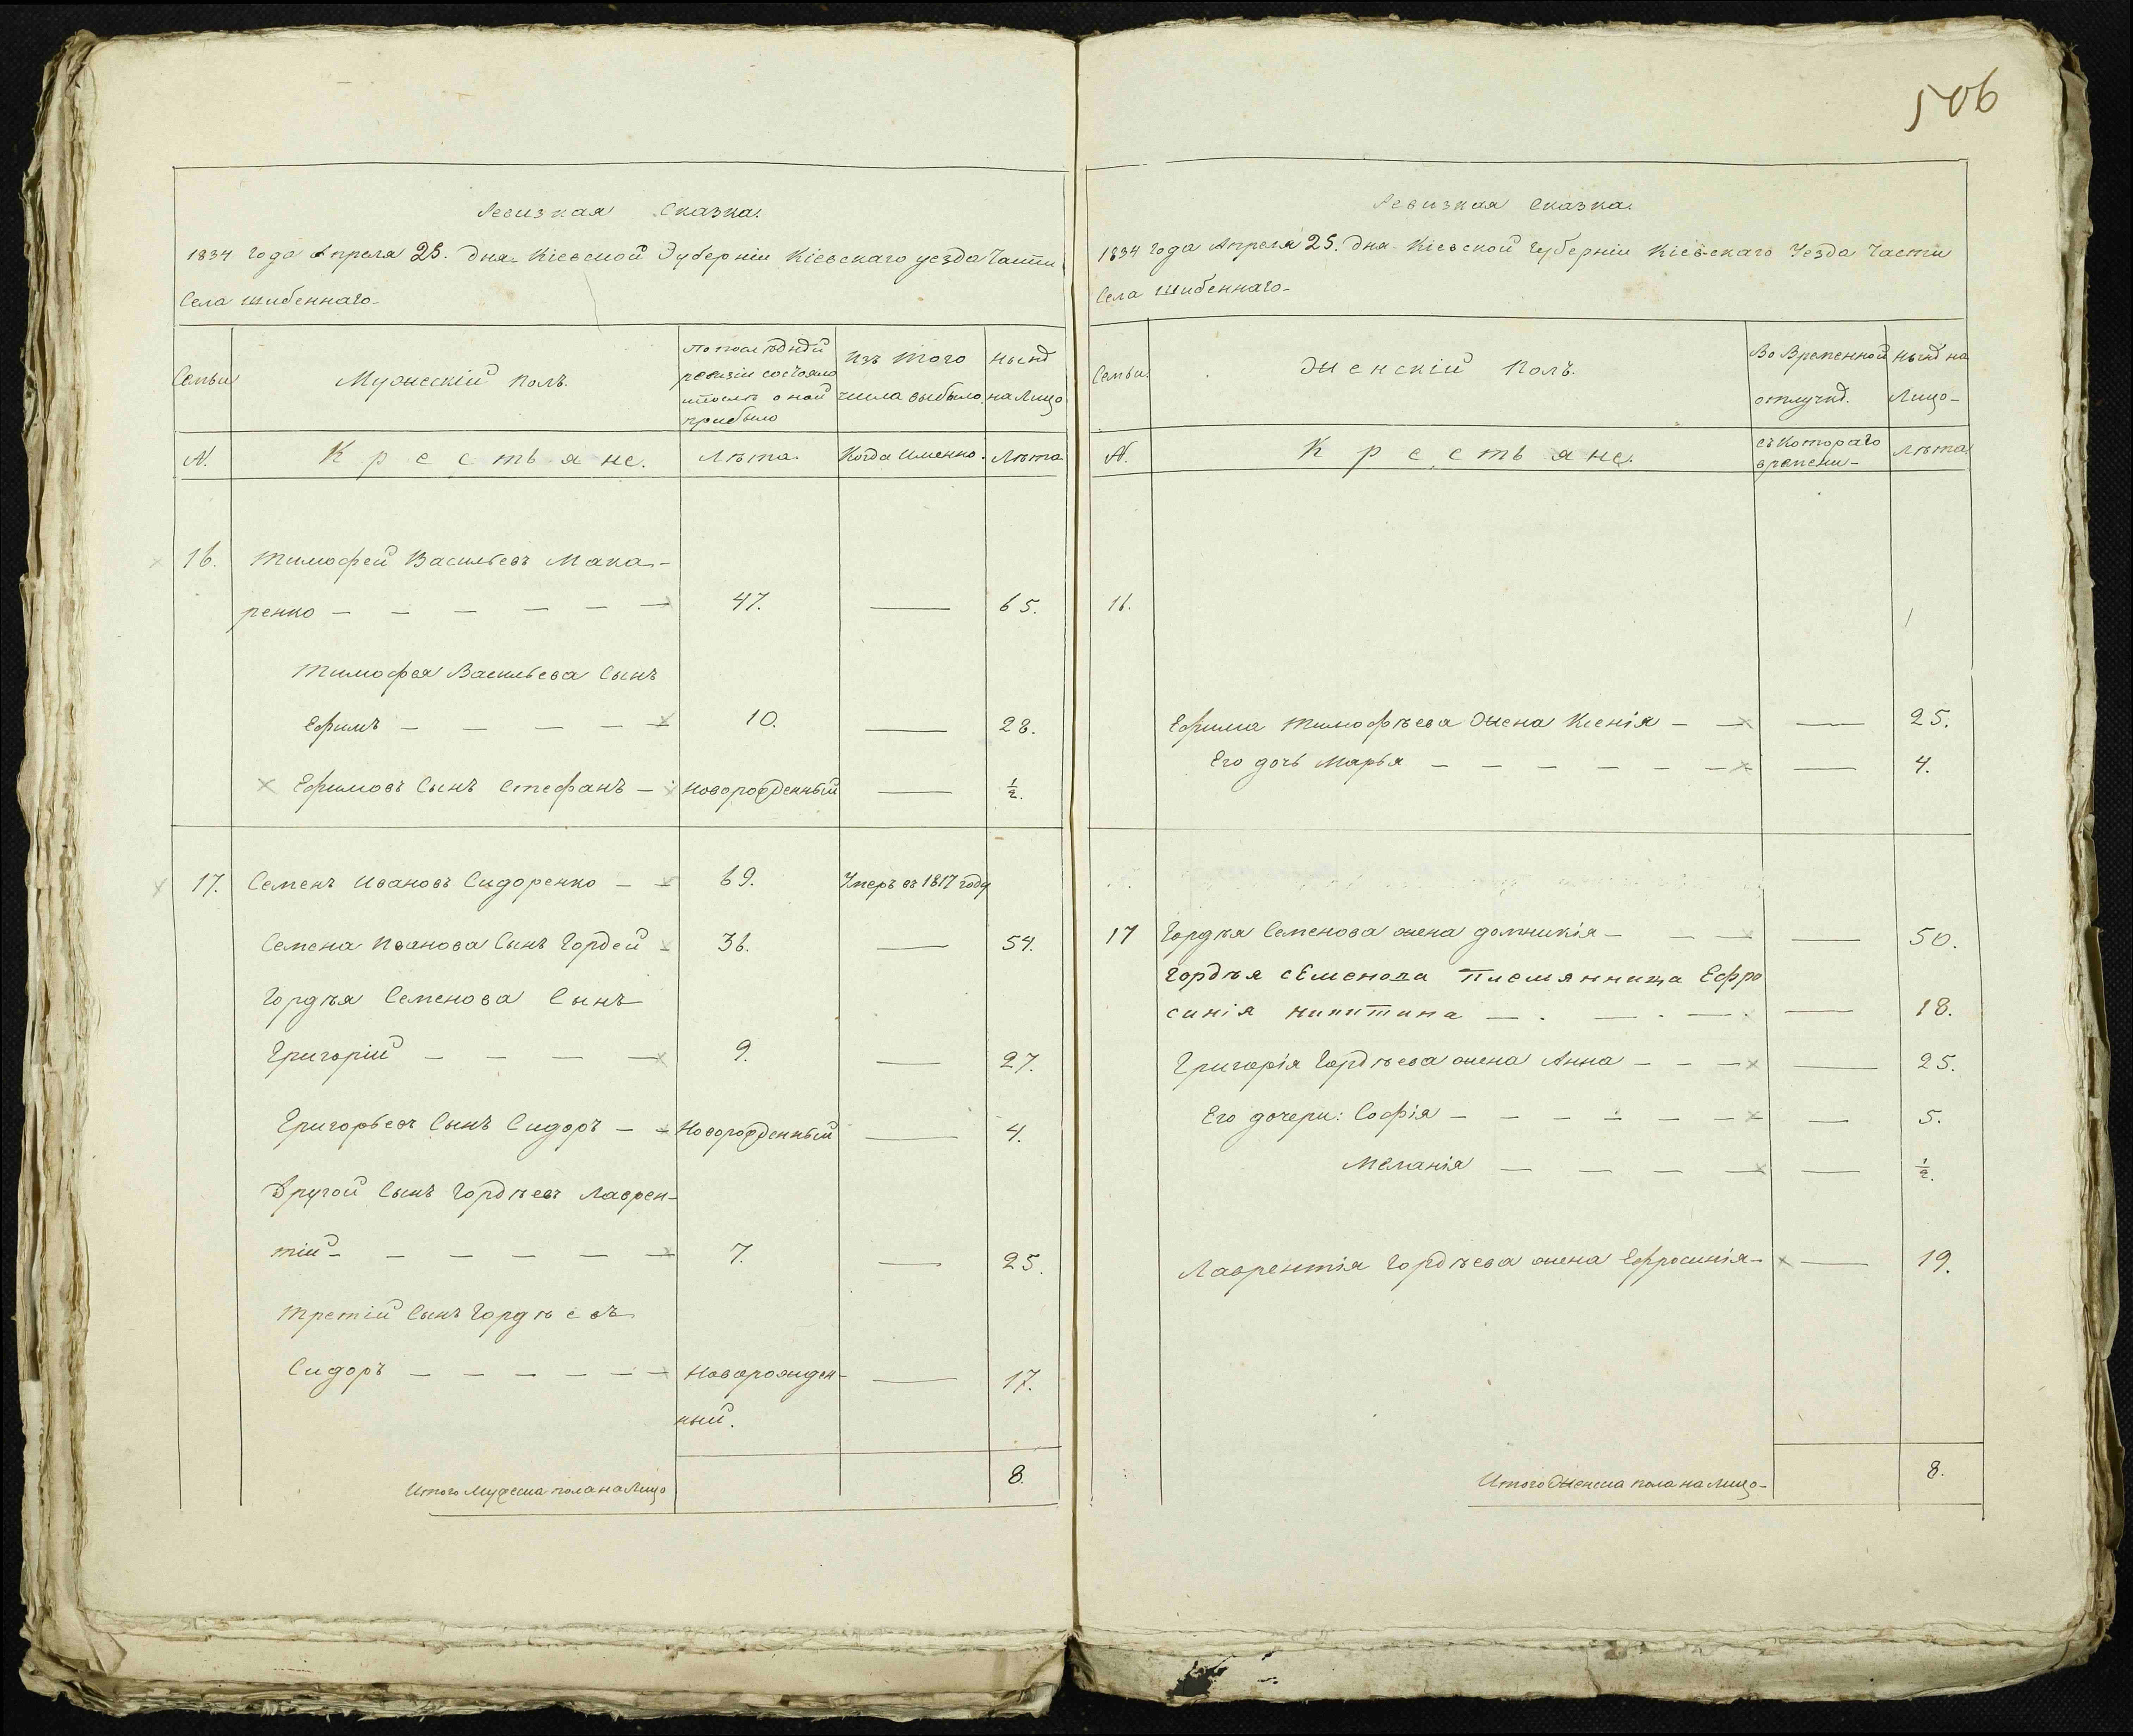 506
Ревизкая Сказка.
1834 года Апреля 25. дня Кіевской Губерніи Кіевскаго уезда Части
Села Шибеннаго
Семьи
Мужескій полъ.
По последней ревизіи состояло и после оной прибыло
Изъ того числа выбыло
Ныне на Лицо
N.
Крестьяне.
Лѣта.
Когда Именно.
Лѣта
16. Тимофей Васильевъ Мака-
ренко — 47. — 65.
Тимофея Васильева Сынъ
Ефимъ — 10. — 28.
Ефимовъ Сынъ Стефанъ — новорожденный — ½.
17. Семенъ Ивановъ Сидоренко — 69. Умеръ въ 1817 году
Семена Иванова Сынъ Гордей — 36. — 54.
Гордѣя Семенова Сынъ
Григорій — 9. — 27.
Григорьевъ Сынъ Сидоръ — Новорожденный — 4.
Другой Сынъ Гордѣевъ Лаврен-
тій — 7. — 25.
Третій Сынъ Гордѣевъ
Сидоръ — Новорожден- — 17.
ный.
Итого Мужеска пола на Лицо 8.
Ревизкая Сказка.
1834 года Апреля 25. дня Кіевской Губерніи Кіевскаго Уезда Части
Села Шибеннаго
Семьи.
Женскій Полъ.
Во Временной отлучке.
Ныне на Лицо
N.
Крестьяне.
съ Котораго времени
Лѣта.
16.
Ефима Тимофѣева Жена Ксенія — — 25.
Его дочь Марья — — 4.
17 Гордѣя Семенова жена домникія — — 50.
Гордѣя сЕменова Племянница Ефро
синія никитина — — 18.
Григорія Гордѣева жена Анна — — 25.
Его дочери: Софія — — 5.
Меланія — — ½.
Лаврентія Гордѣева жена Ефросинія — — 19.
Итого Женска пола на Лицо 8.